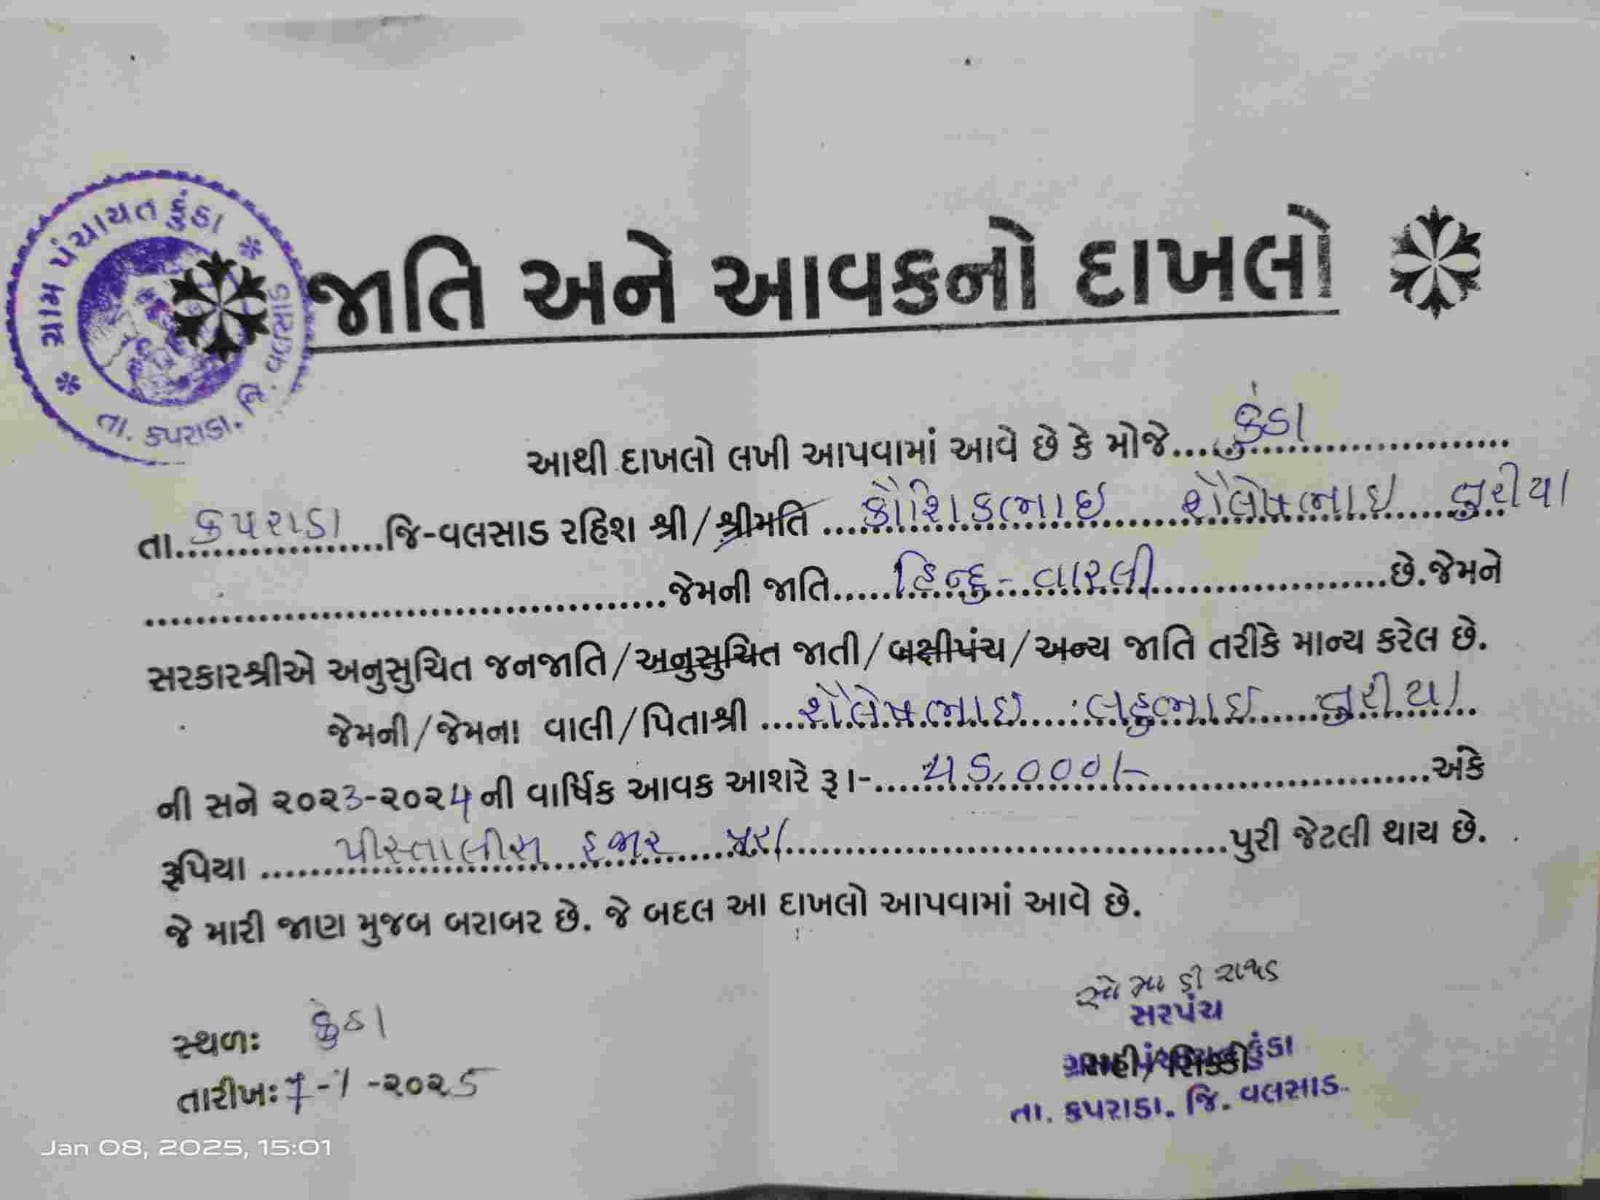 ગ્રામ પંચાયત કુંડા
તા. કપરાડા. જિ. વલસાડ
જાતિ અને આવકનો દાખલો
આથી દાખલો લખી આપવામાં આવે છે કે મોજે....કુંડા....................
તા.કપરાડા.......જિ-વલસાડ રહિશ શ્રી/શ્રીમતિ ...કૌશિકભાઇ શૈલેષભાઇ નુરીયા
........................................જેમની જાતિ.....હિન્દુ-વારલી....................છે.જેમને
સરકારશ્રીએ અનુસુચિત જનજાતિ/અનુસુચિત જાતી/બક્ષીપંચ/અન્ય જાતિ તરીકે માન્ય કરેલ છે.
જેમની/જેમના વાલી/પિતાશ્રી ...શૈલેષભાઇ લહુભાઇ નુરીયા
ની સને ૨૦૨3-૨૦૨4 ની વાર્ષિક આવક આશરે રૂ।-....૪૫,૦૦૦/-....................અંકે
રૂપિયા ......પીસ્તાલીસ હજાર પુરા..............................પુરી જેટલી થાય છે.
જે મારી જાણ મુજબ બરાબર છે. જે બદલ આ દાખલો આપવામાં આવે છે.
સ્થળઃ કુંડા
તારીખઃ 7-1-૨૦૨5
સરપંચ
ગ્રામ પંચાયત કુંડા
સહી/સિક્કો
તા. કપરાડા. જિ. વલસાડ.
Jan 08, 2025, 15:01